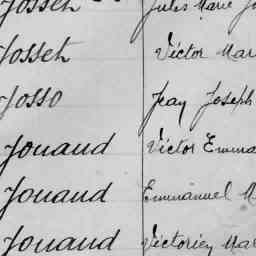 Josseh Jules Marie
Josseh Victor Mar
Josso Jean Joseph
Jouaud Victor Emma
Jouaud Emmanuel M
Jouaud Victorien Mar